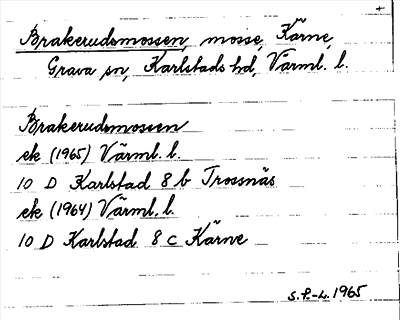 +
Brakerudsmossen, mosse, Kärne,
Grava sn, Karlstads hd, Värml. l.
Brakerudsmossen
ek (1965) Värml. l.
10 D Karlstad 8 b Trossnäs
ek (1964) Värml. l.
10 D Karlstad 8 c Kärne
S.F.-L. 1965